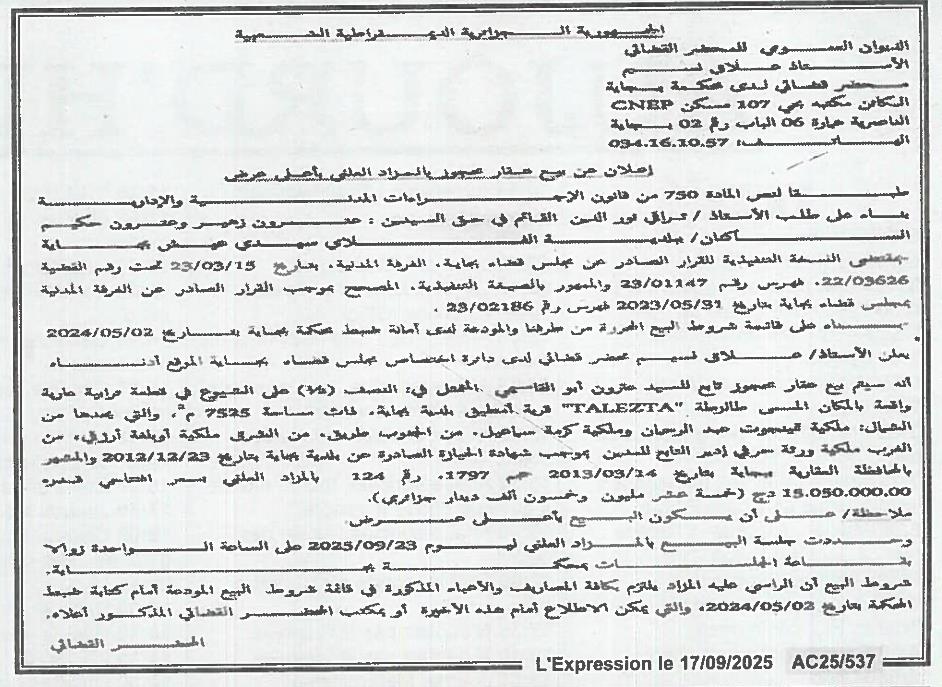 الجمهورية الجزائرية الديمقراطية الشعبية
الديوان العمومي للمحضر القضائي
الأستاذ علاق نسيم
محضر قضائي لدى محكمة بجاية
الكائن مكتبه بحي 107 مسكن CNEP
الناصرية عمارة 06 الباب رقم 02 بجاية
الهاتف: 034.16.10.57
إعلان عن بيع عقار محجوز بالمزاد العلني بأعلى عرض
طبقا لنص المادة 750 من قانون الإجراءات المدنية والإدارية
بناء على طلب الأستاذ / نور الدين القائم في حق السيدين : عترون زهير وعترون حكيم
الساكنان/ بلدية سيدي عيش بجاية
بمقتضى النسخة التنفيذية للقرار الصادر عن مجلس قضاء بجاية، الغرفة المدنية، بتاريخ 23/03/15 تحت رقم القضية
22/03626، فهرس رقم 23/01147 والممهور بالصيغة التنفيذية، المصحح بموجب القرار الصادر عن الغرفة المدنية
بمجلس قضاء بجاية بتاريخ 2023/05/31 فهرس رقم 23/02186 .
-بناء على قائمة شروط البيع المحررة من طرفنا والمودعة لدى أمانة ضبط محكمة بجاية بتاريخ 2024/05/02
يعلن الأستاذ/ علاق نسيم محضر قضائي لدى دائرة اختصاص مجلس قضاء بجاية الموقع أدناه
أنه سيتم بيع عقار محجوز تابع للسيد عترون أبو القاسم المتمثل في: النصف (½) على الشيوع في قطعة ترابية عارية
واقعة بالمكان المسمى طالزطة "TALEZTA" قرية بلدية بجاية، ذات مساحة 7525 م²، والتي يحدها من
الشمال: ملكية عبد الرحمان وملكية كريمة سماعيل، من الجنوب طريق، من الشرق ملكية، من
الغرب ملكية ورثة التابع للمدين بموجب شهادة الحيازة الصادرة عن بلدية بجاية بتاريخ 2012/12/23 والمشهر
بالمحافظة العقارية ببجاية بتاريخ 2013/03/14 حجم 1797، رقم 124 بالمزاد العلني بسعر افتتاحي قدره
15.050.000.00 دج (خمسة عشر مليون وخمسون ألف دينار جزائري).
ملاحظة/ على أن يكون البيع بأعلى عرض.
وحددت جلسة البيع بالمزاد العلني ليوم 2025/09/23 على الساعة الواحدة زوالا
بقاعة الجلسات بمحكمة بجاية.
شروط البيع أن الراسي عليه المزاد يلتزم بكافة المصاريف والأعباء المذكورة في قائمة شروط البيع المودعة أمام كتابة ضبط
المحكمة بتاريخ 2024/05/02، والتي يمكن الاطلاع أمام هذه الأخيرة أو بمكتب المحضر القضائي المذكور أعلاه.
المحضر القضائي
L'Expression le 17/09/2025 AC25/537